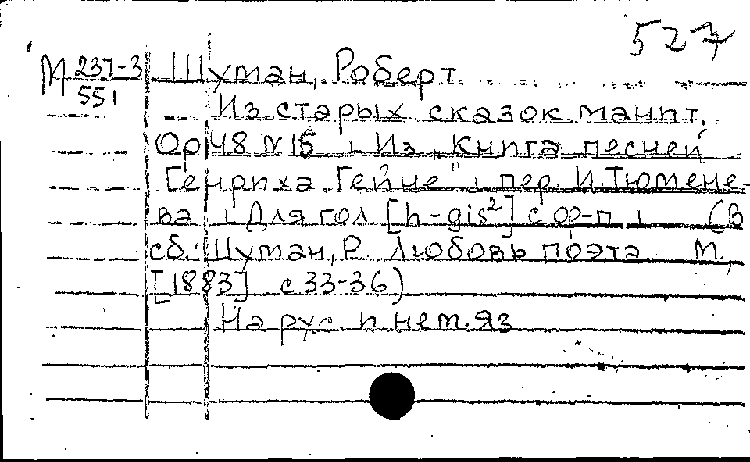 527
М 237-3 Шуман, Роберт
551
Из старых сказок манит.
Op 48 N 15 ; Из „Книга песней
Генриха Гейне" ; пер. И.Тюмене-
ва ; Для гол [h-gis²] с ф-п ; (В
сб.: Шуман, Р. Любовь поэта М,
[1883] с 33-36)
На рус. и нем. яз